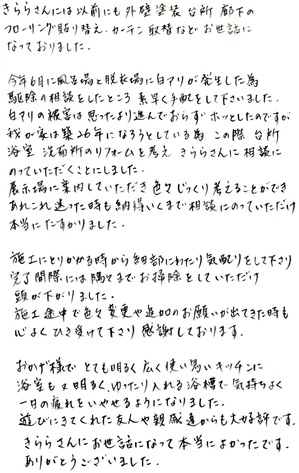 きららさんには以前にも外壁塗装 台所 廊下の
フローリング貼り替え、カーテン取替などお世話に
なっておりました。
今年6月に風呂場と脱衣場に白アリが発生した為
駆除の相談をしたところ 素早く手配をして下さいました。
白アリの被害は思ったより進んでおらず ホッとしたのですが
我が家は築26年になろうとしている為 この際 台所
浴室 洗面所のリフォームを考え きららさんに相談に
のっていただくことにしました。
展示場に案内していただき色々じっくり考えることができ
あれこれ迷った時も納得いくまで相談にのっていただけ
本当にたすかりました。
施工にとりかかる時から細部にわたり気配りをして下さり
完了間際には隅々までお掃除をしていただけ
頭が下がりました。
施工途中で色々変更や追加のお願いが出てきた時も
心よくひき受けて下さり 感謝しております。
おかげ様で とても明るく広く使い易いキッチンに
浴室も又明るく、ゆったり入れる浴槽で 気持ちよく
一日の疲れをいやせるようになりました。
遊びにきてくれた友人や親戚達からも大好評です。
きららさんにお世話になって本当によかったです。
ありがとうございました。